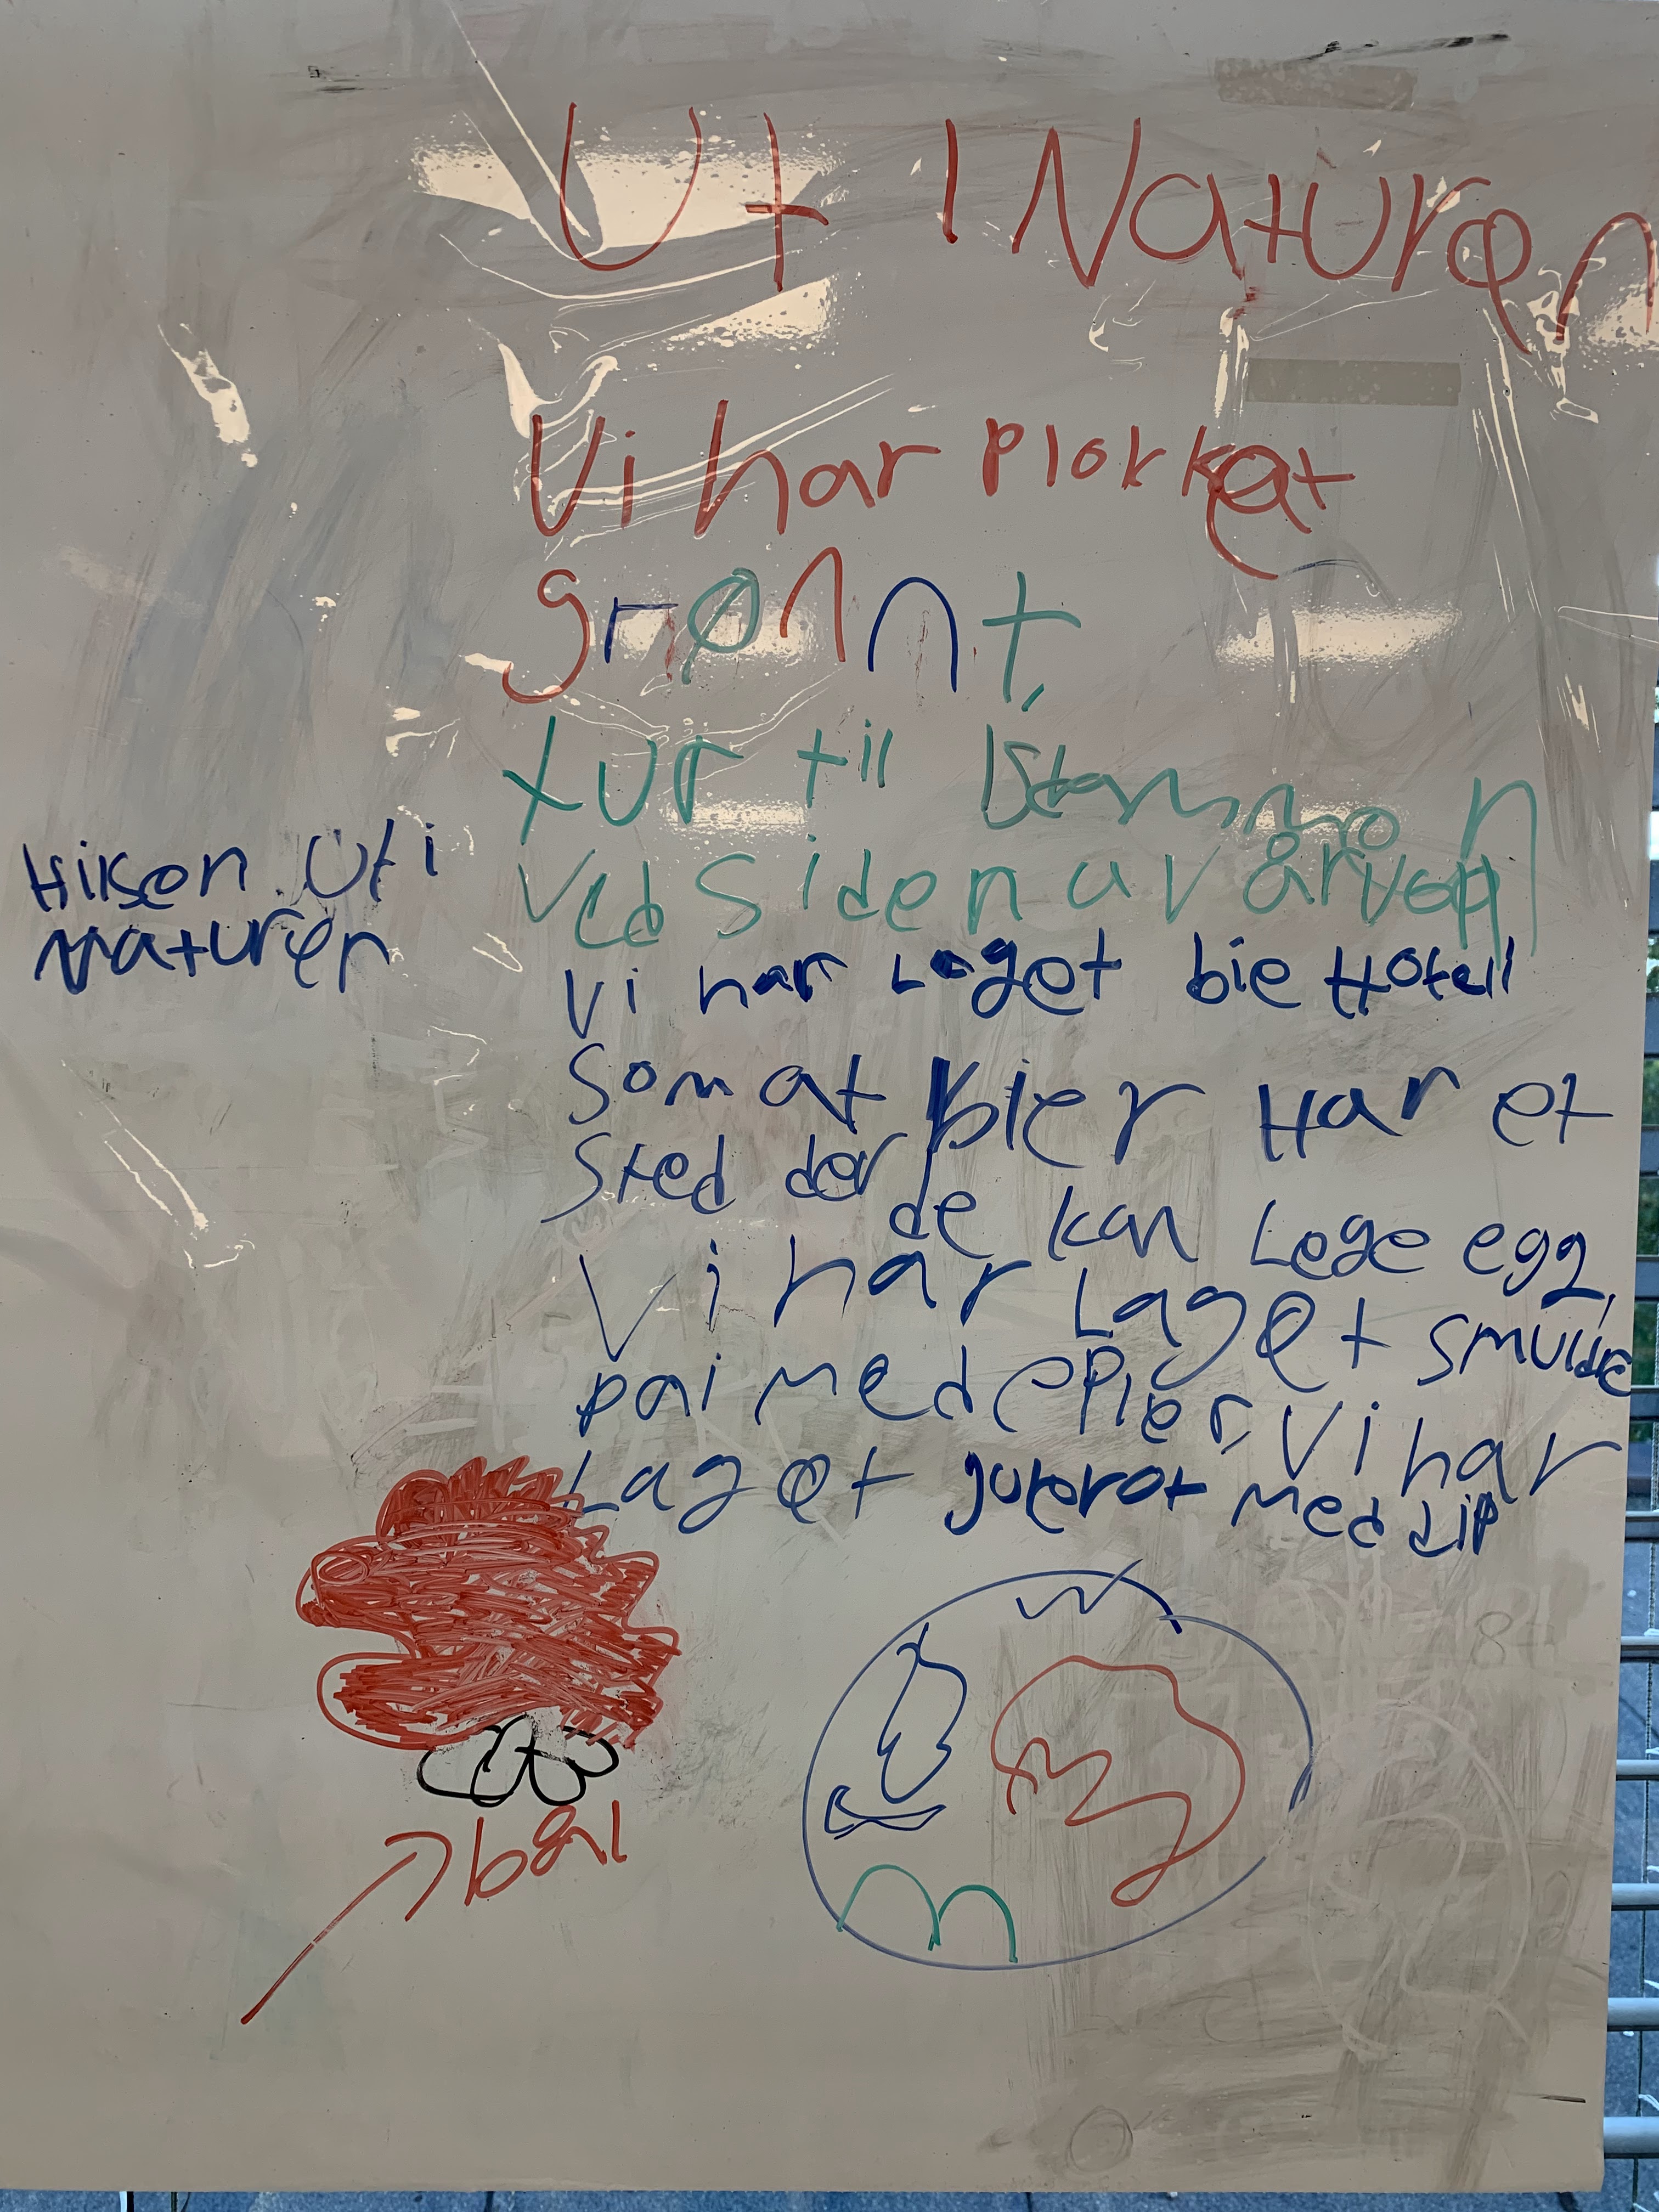 Ut I Naturen
Vi har plokket
grønnt,
tur til
ved siden av
Hilsen Ut i
naturen
Vi har Laget bie Hotell
Som at bier Har et
Sted der
de kan Lege egg,
Vi har Laget smulde
pai med epler, Vi har
Laget gulerot med dip
bål